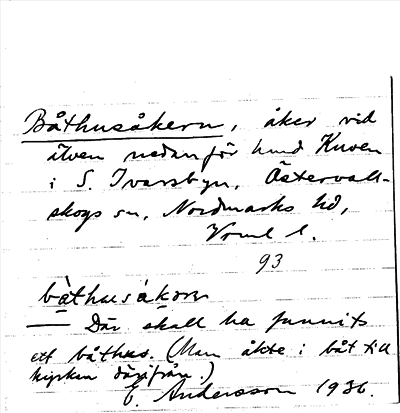 Båthusåkern, åker vid
älven nedanför hmd Kuven
i S. Ivarsbyn, Östervall-
skogs sn, Nordmarks hd,
Vrml l.
93
båthusåkorn
Där skall ha funnits
ett båthus. (Man åkte i båt till
kyrkan därifrån.)
E. Andersson 1936.